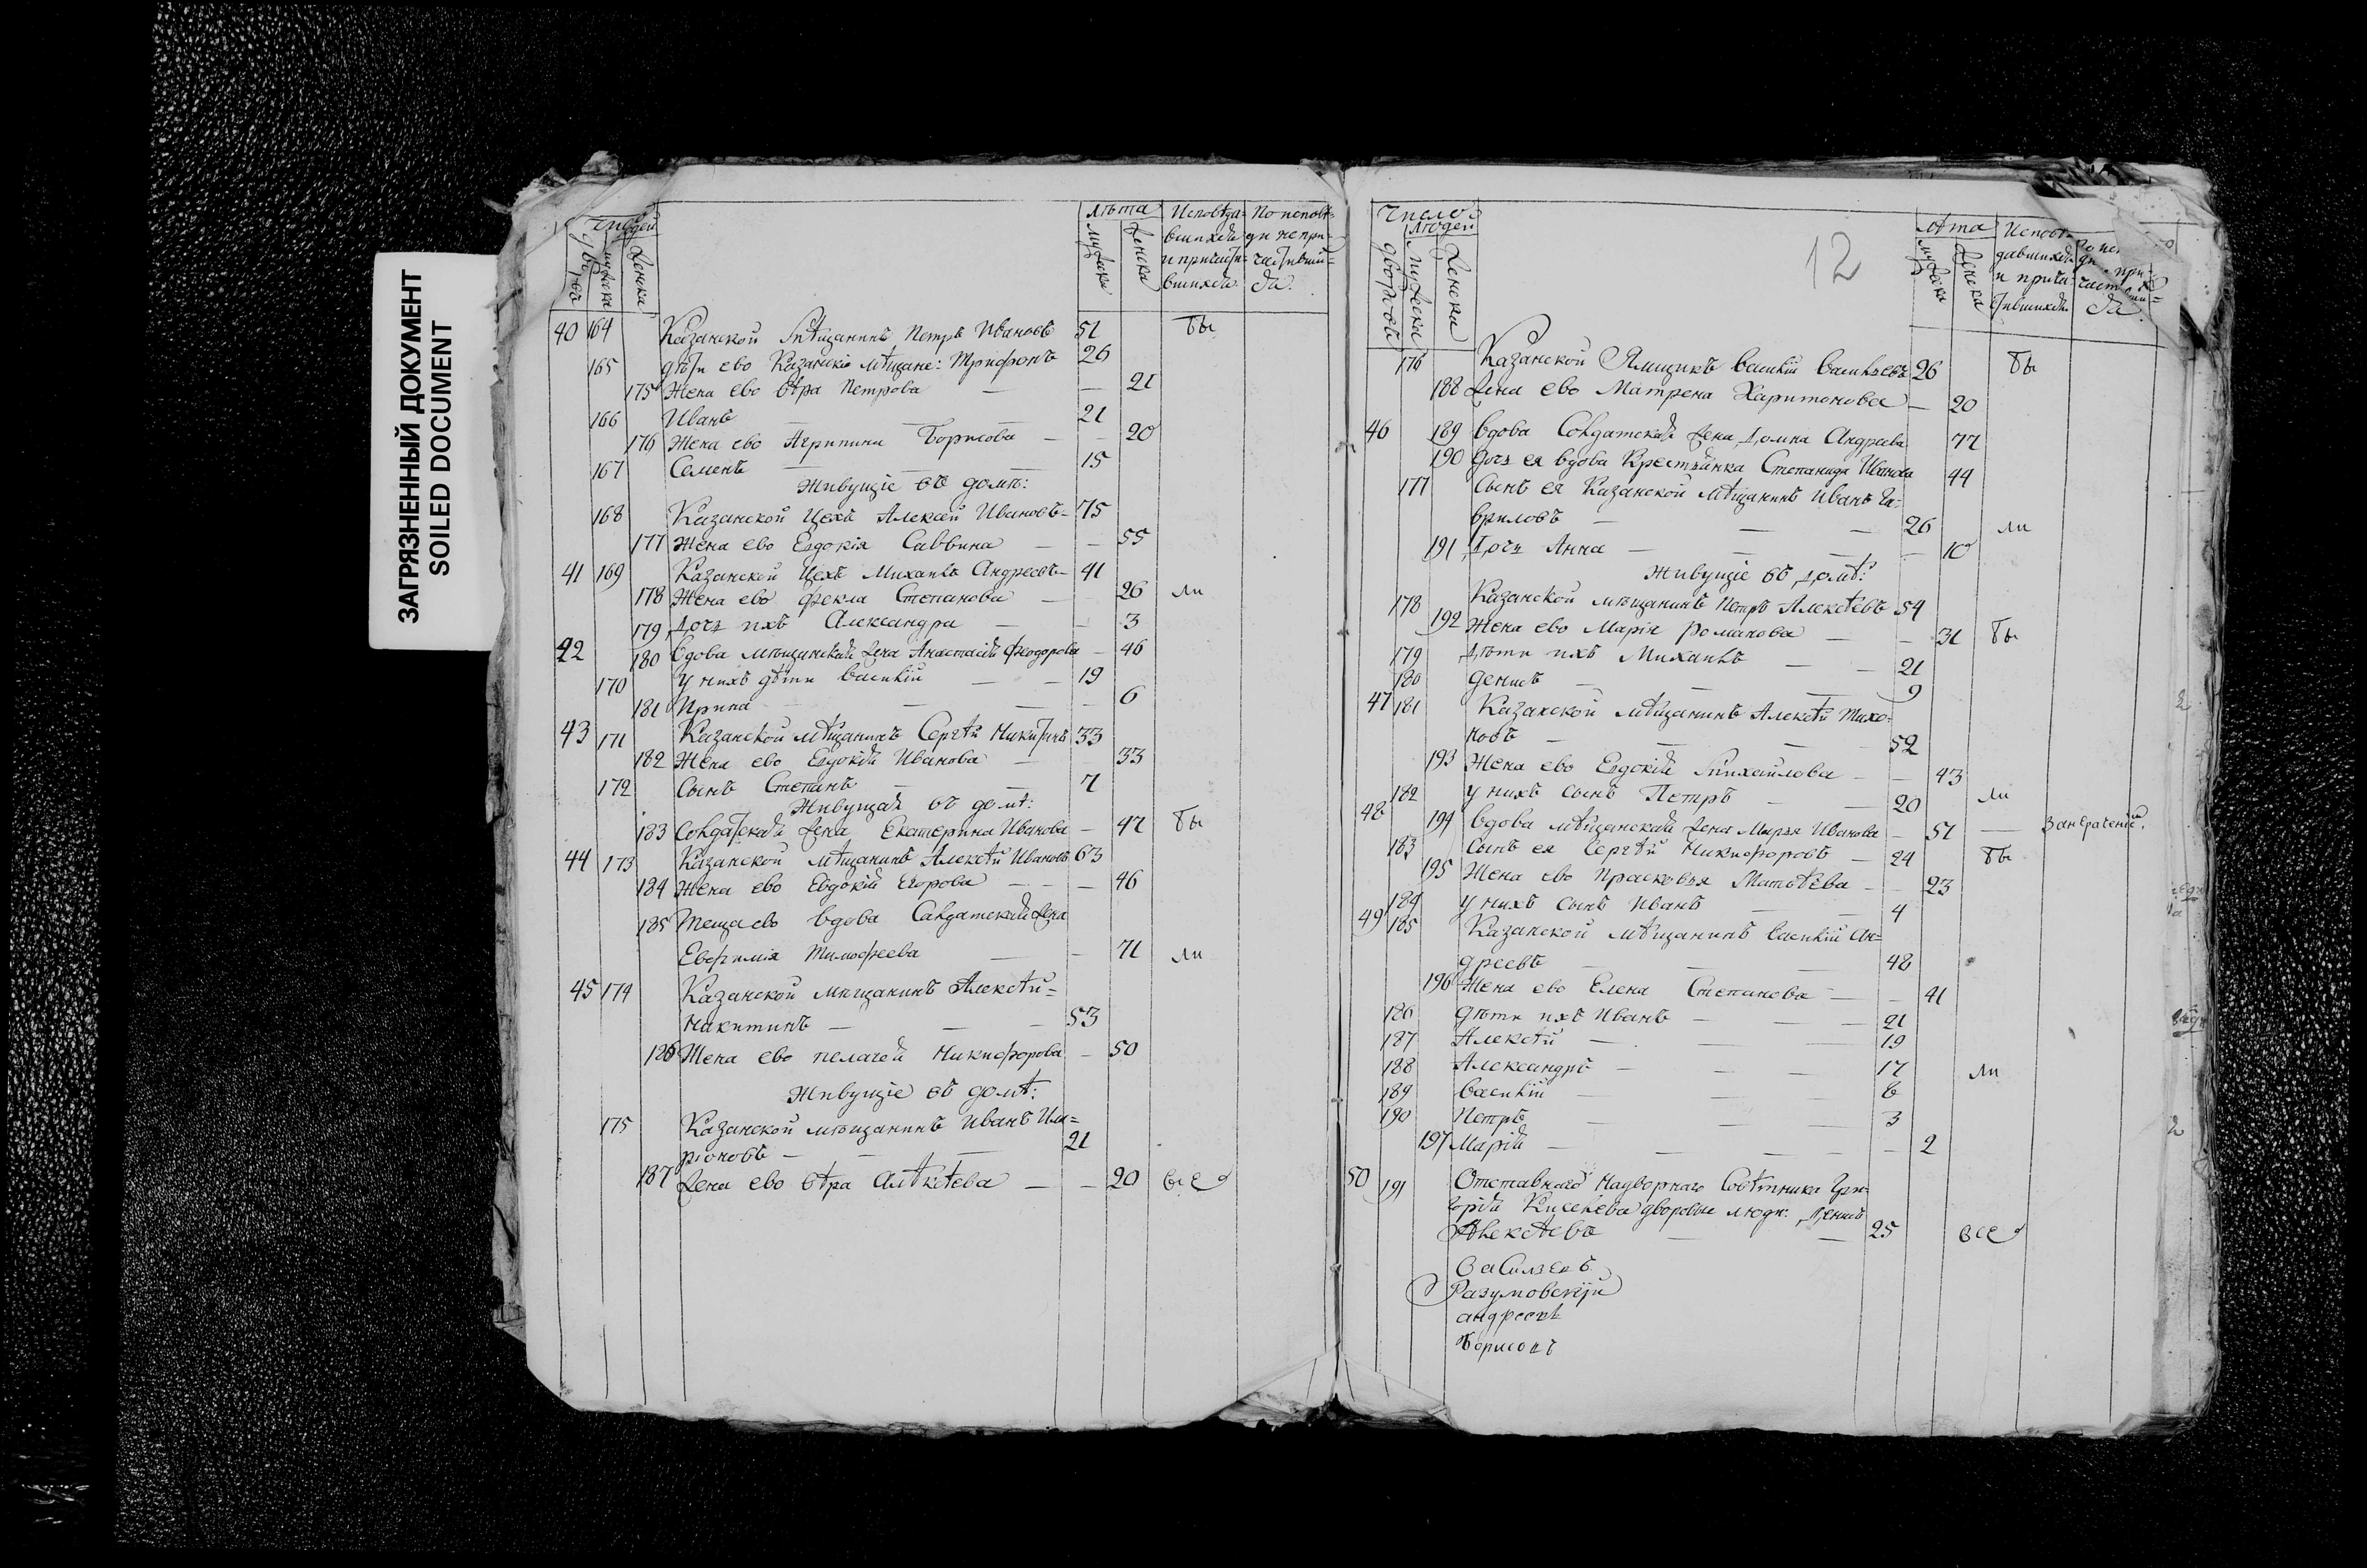 ЗАГРЯЗНЕННЫЙ ДОКУМЕНТ
SOILED DOCUMENT
людей
мужеска
женска
лѣта
мужеска
женска
Исповѣда=
вшихся
и причаст=
вшихся.
По исповѣ=
ди непри=
частивши=
ся.
40 164 Казанской Мѣщанинъ Петръ Ивановъ 51 бы
165 дѣти ево Казанскіе мѣщане: Трифонъ 26
175 Жена ево Вѣра Петрова — — 21
166 Иванъ — — — 21
176 Жена ево Агрипина Борисова — — 20
167 Семенъ — — — 15
Живущіе въ домѣ:
168 Казанской Цехъ Алексей Ивановъ — 75
177 Жена ево Евдокія Саввина — — 55
41 169 Казанской Цехъ Михаилъ Андреевъ — 41
178 Жена ево Фекла Степанова — 26 ли
179 Дочь ихъ Александра — — 3
42 180 Вдова мѣщанская жена Анастасія Феодорова — 46
170 У нихъ дѣти Василій — — 19
181 Ирина — — — 6
43 171 Казанской мѣщанинъ Сергѣй Никитинъ 33
182 Жена ево Евдокія Иванова — 33
172 Сынъ Степанъ — — 7
Живущая въ домѣ:
183 Солдатская жена Екатерина Иванова — 47 бы
44 173 Казанской мѣщанинъ Алексѣй Ивановъ 63
184 Жена ево Евдокія Егорова — — — 46
185 Теща ево вдова Салдатская жена
Евфимія Тимофеева — — 71 ли
45 174 Казанской мѣщанинъ Алексѣй=
Никитинъ — — — 53
186 Жена ево Пелагея Никифорова — 50
Живущіе въ домѣ:
175 Казанской мѣщанинъ Иванъ Ила=
ріоновъ — — — 21
187 Жена ево Вѣра Алѣксѣева — — 20 все
12
Число
людей
дворовъ
мужеска
женска
лѣта
мужеска
женска
Исповѣ=
давшихся
и прича=
стившихся.
ся.
176 Казанской Ямщикъ Василій Васильевъ 26 бы
188 Жена ево Матрена Харитонова — 20
46 189 Вдова Солдатская жена Домна Андреева 77
190 Дочь ея вдова Крестьянка Степанида Иванова 44
177 Сынъ ея Казанской мѣщанинъ Иванъ Га=
вриловъ — — — 26 ли
191 Дочь Анна — — — — 10
Живущіе въ домѣ:
178 Казанской мѣщанинъ Петръ Алексѣевъ 54
192 Жена ево Марія Романова — — 31 бы
179 Дѣти ихъ Михаилъ — — 21
180 Денисъ — — — 9
47 181 Казанской мѣщанинъ Алексѣй Тихо=
новъ — — — 52
193 Жена ево Евдокія Михайлова — — 43
182 У нихъ сынъ Петръ — — 20 ли
48 194 Вдова мѣщанская жена Марья Иванова — 51 —
183 Сынъ ея Сергѣй Никифоровъ — 24 бы
195 Жена ево Прасковья Матвѣева — — 23
184 У нихъ сынъ Иванъ — — 4
49 185 Казанской мѣщанинъ Василій Ан=
дреевъ — — — 48
196 Жена ево Елена Степанова — — 41
186 Дѣти ихъ Иванъ — — — 21
187 Алексѣй — — — 19
188 Александръ — — — 17 ли
189 Василій — — — 6
190 Петръ — — — 3
197 Марія — — — — 2
50 191 Отставнаго Надворнаго Совѣтника Гри=
горія Киселева дворовые люди:
Алексѣевъ — — 25 все
Васильевъ
Разумовскій
андреевъ
Борисовъ